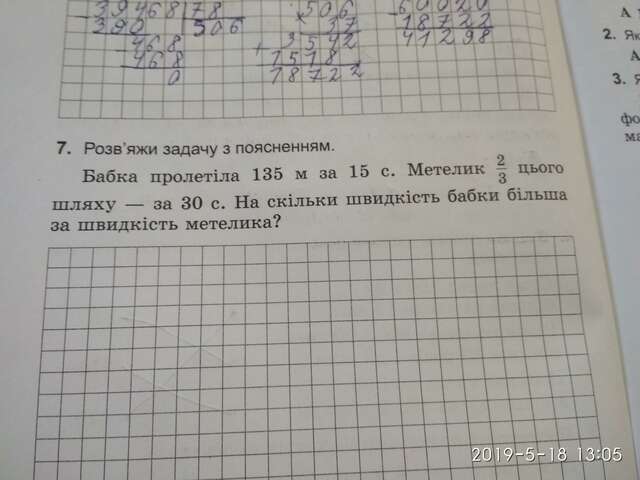 39468 78 506 60020
390 506 37 18722
468 3542 41298
468 1518
0 18722
А
2. Як
А
3. Я
фо
ма
7. Розв'яжи задачу з поясненням.
Бабка пролетіла 135 м за 15 с. Метелик 2/3 цього
шляху — за 30 с. На скільки швидкість бабки більша
за швидкість метелика?
2019-5-18 13:05